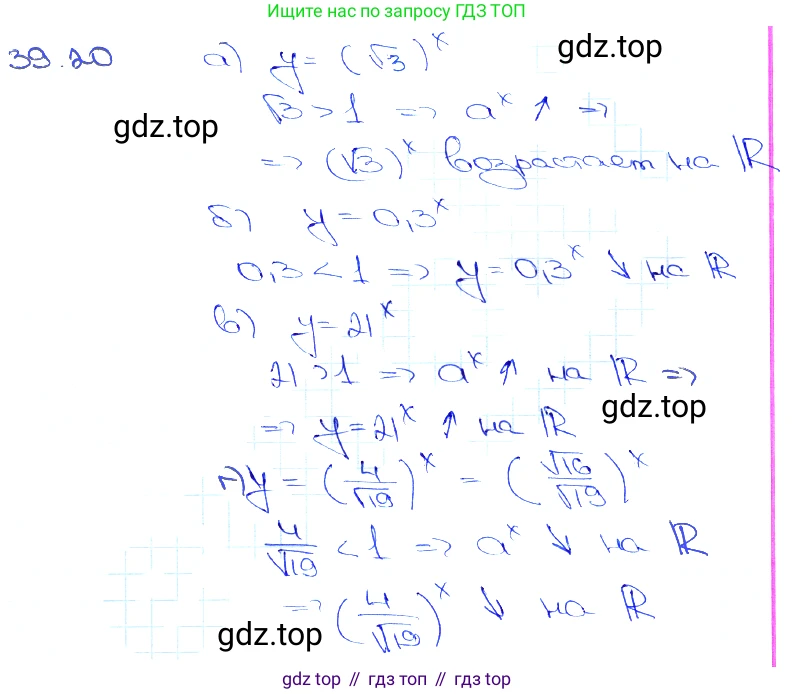 Ищите нас по запросу ГДЗ ТОП
39.20 а) y = (√3)^x gdz.top
√3 > 1 => a^x ↑ =>
gdz.top
=> (√3)^x возрастает на ℝ
б) y = 0,3^x
0,3 < 1 => y = 0,3^x ↓ на ℝ
в) y = 21^x
21 > 1 => a^x ↑ на ℝ =>
gdz.top
=> y = 21^x ↑ на ℝ
г) y = (4/√19)^x = (√16/√19)^x
4/√19 < 1 => a^x ↓ на ℝ
=> (4/√19)^x ↓ на ℝ
gdz.top
gdz.top // гдз топ // gdz.top